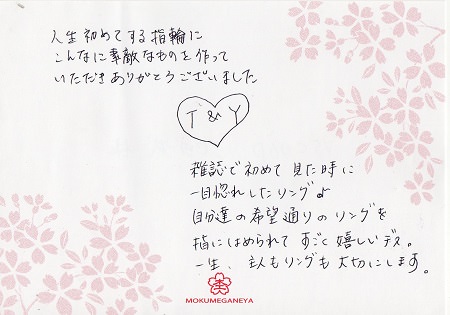 人生初めてする指輪に
こんなに素敵なものを作って
いただきありがとうございました
T & Y
雑誌で初めて見た時に
一目惚れしたリング♪
自分達の希望通りのリングを
指にはめられてすごく嬉しいデス。
一生、主人もリングも大切にします。
MOKUMEGANEYA